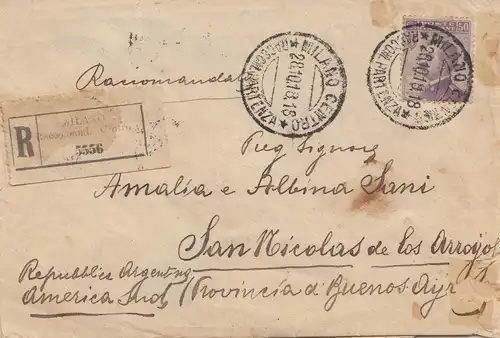 50
MILANO CENTRO
28.10.18.18
RACCOM. PARTENZA
MILANO
28.10.18.18
RACCOM. PARTENZA
Raccomandata
R
MILANO
5556
Amalia e Albina Sani
San Nicolas de los Arroyos
Republica Argentina
America Sud / Provincia d Buenos Ayr